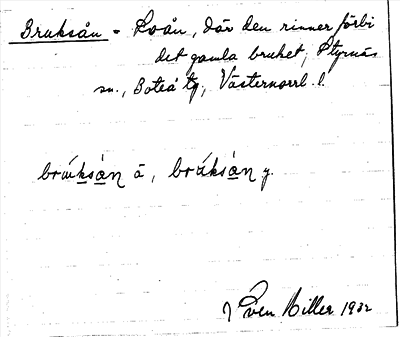 Bruksån = Loån, där den rinner förbi
det gamla bruket, Styrnäs
sn., Boteå tg, Västernorrl. l.
brúksán ä, brúksán y.
Sven Hiller 1932